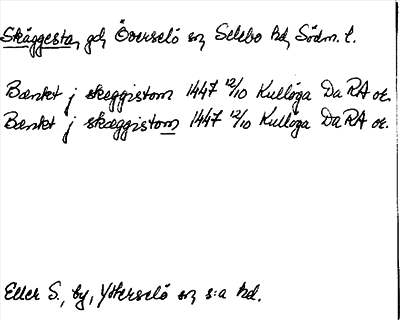 Skäggesta, gd, Överselö sn, Selebo hd, Södm. l.
Bænkt j skeggistom 1447 12/10 Kulloga Da RA or.
Bænkt j skæggistom 1447 12/10 Kulloga Da RA or.
Eller S., by, Ytterselö sn, s:a hd.